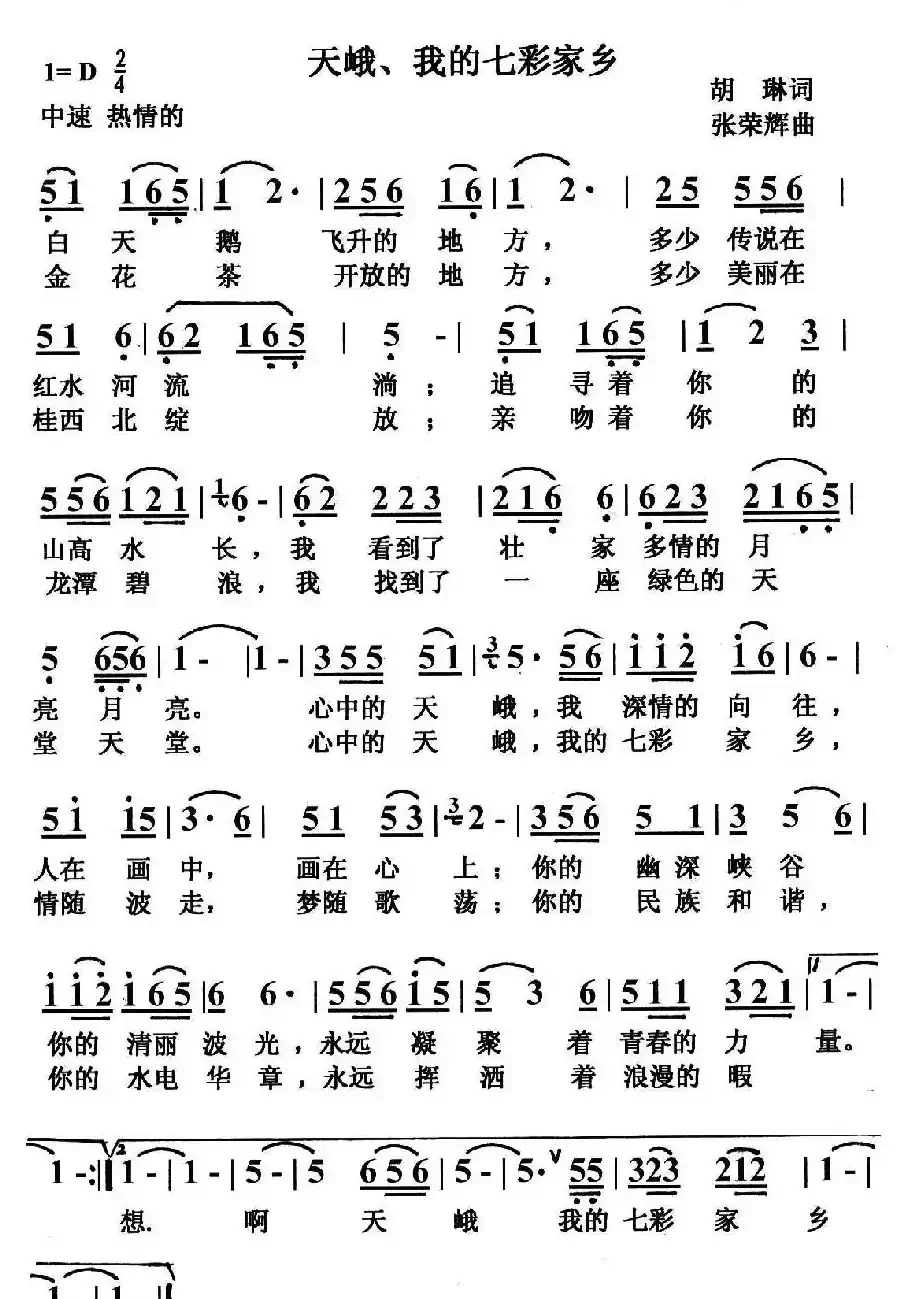 天峨、我的七彩家乡
1= D 2/4
胡 琳词
中速 热情的
张荣辉曲
5 1 1 6 5 | 1 2· | 2 5 6 1 6 | 1 2· | 2 5 5 5 6 |
白 天 鹅 飞升的 地 方， 多少 传说在
金 花 茶 开放的 地 方， 多少 美丽在
5 1 6 | 6 2 1 6 5 | 5 - | 5 1 1 6 5 | 1 2 3 |
红水 河 流 淌； 追 寻着 你 的
桂西 北 绽 放； 亲 吻着 你 的
5 5 6 1 2 1 | 1/七 6 - | 6 2 2 2 3 | 2 1 6 6 | 6 2 3 2 1 6 5 |
山高 水 长，我 看到了 壮 家 多情的 月
龙潭 碧 浪，我 找到了 一 座 绿色的 天
5 6 5 6 | 1 - | 1 - | 3 5 5 5 1 | 3/七 5· 5 6 | 1 1 2 1 6 | 6 - |
亮 月 亮。 心中的 天 峨，我 深情的 向 往，
堂 天 堂。 心中的 天 峨，我的 七彩 家 乡，
5 1 1 5 | 3· 6 | 5 1 5 3 | 3/七 2 - | 3 5 6 5 1 | 3 5 6 |
人在 画 中， 画在 心 上；你的 幽深 峡 谷
情随 波 走， 梦随 歌 荡；你的 民族 和 谐，
1 1 2 1 6 5 | 6 6· | 5 5 6 1 5 | 5 3 6 | 5 1 1 3 2 1 | 1 - |
你的 清丽 波 光，永远 凝 聚 着 青春的 力 量。
你的 水电 华 章，永远 挥 洒 着 浪漫的 暇
1 - :‖ 2 1 - | 1 - | 5 - | 5 6 5 6 | 5 - | 5·∨ 5 5 | 3 2 3 2 1 2 | 1 - |
想. 啊 天 峨 我的 七彩 家 乡
| 1 - | 1 - |